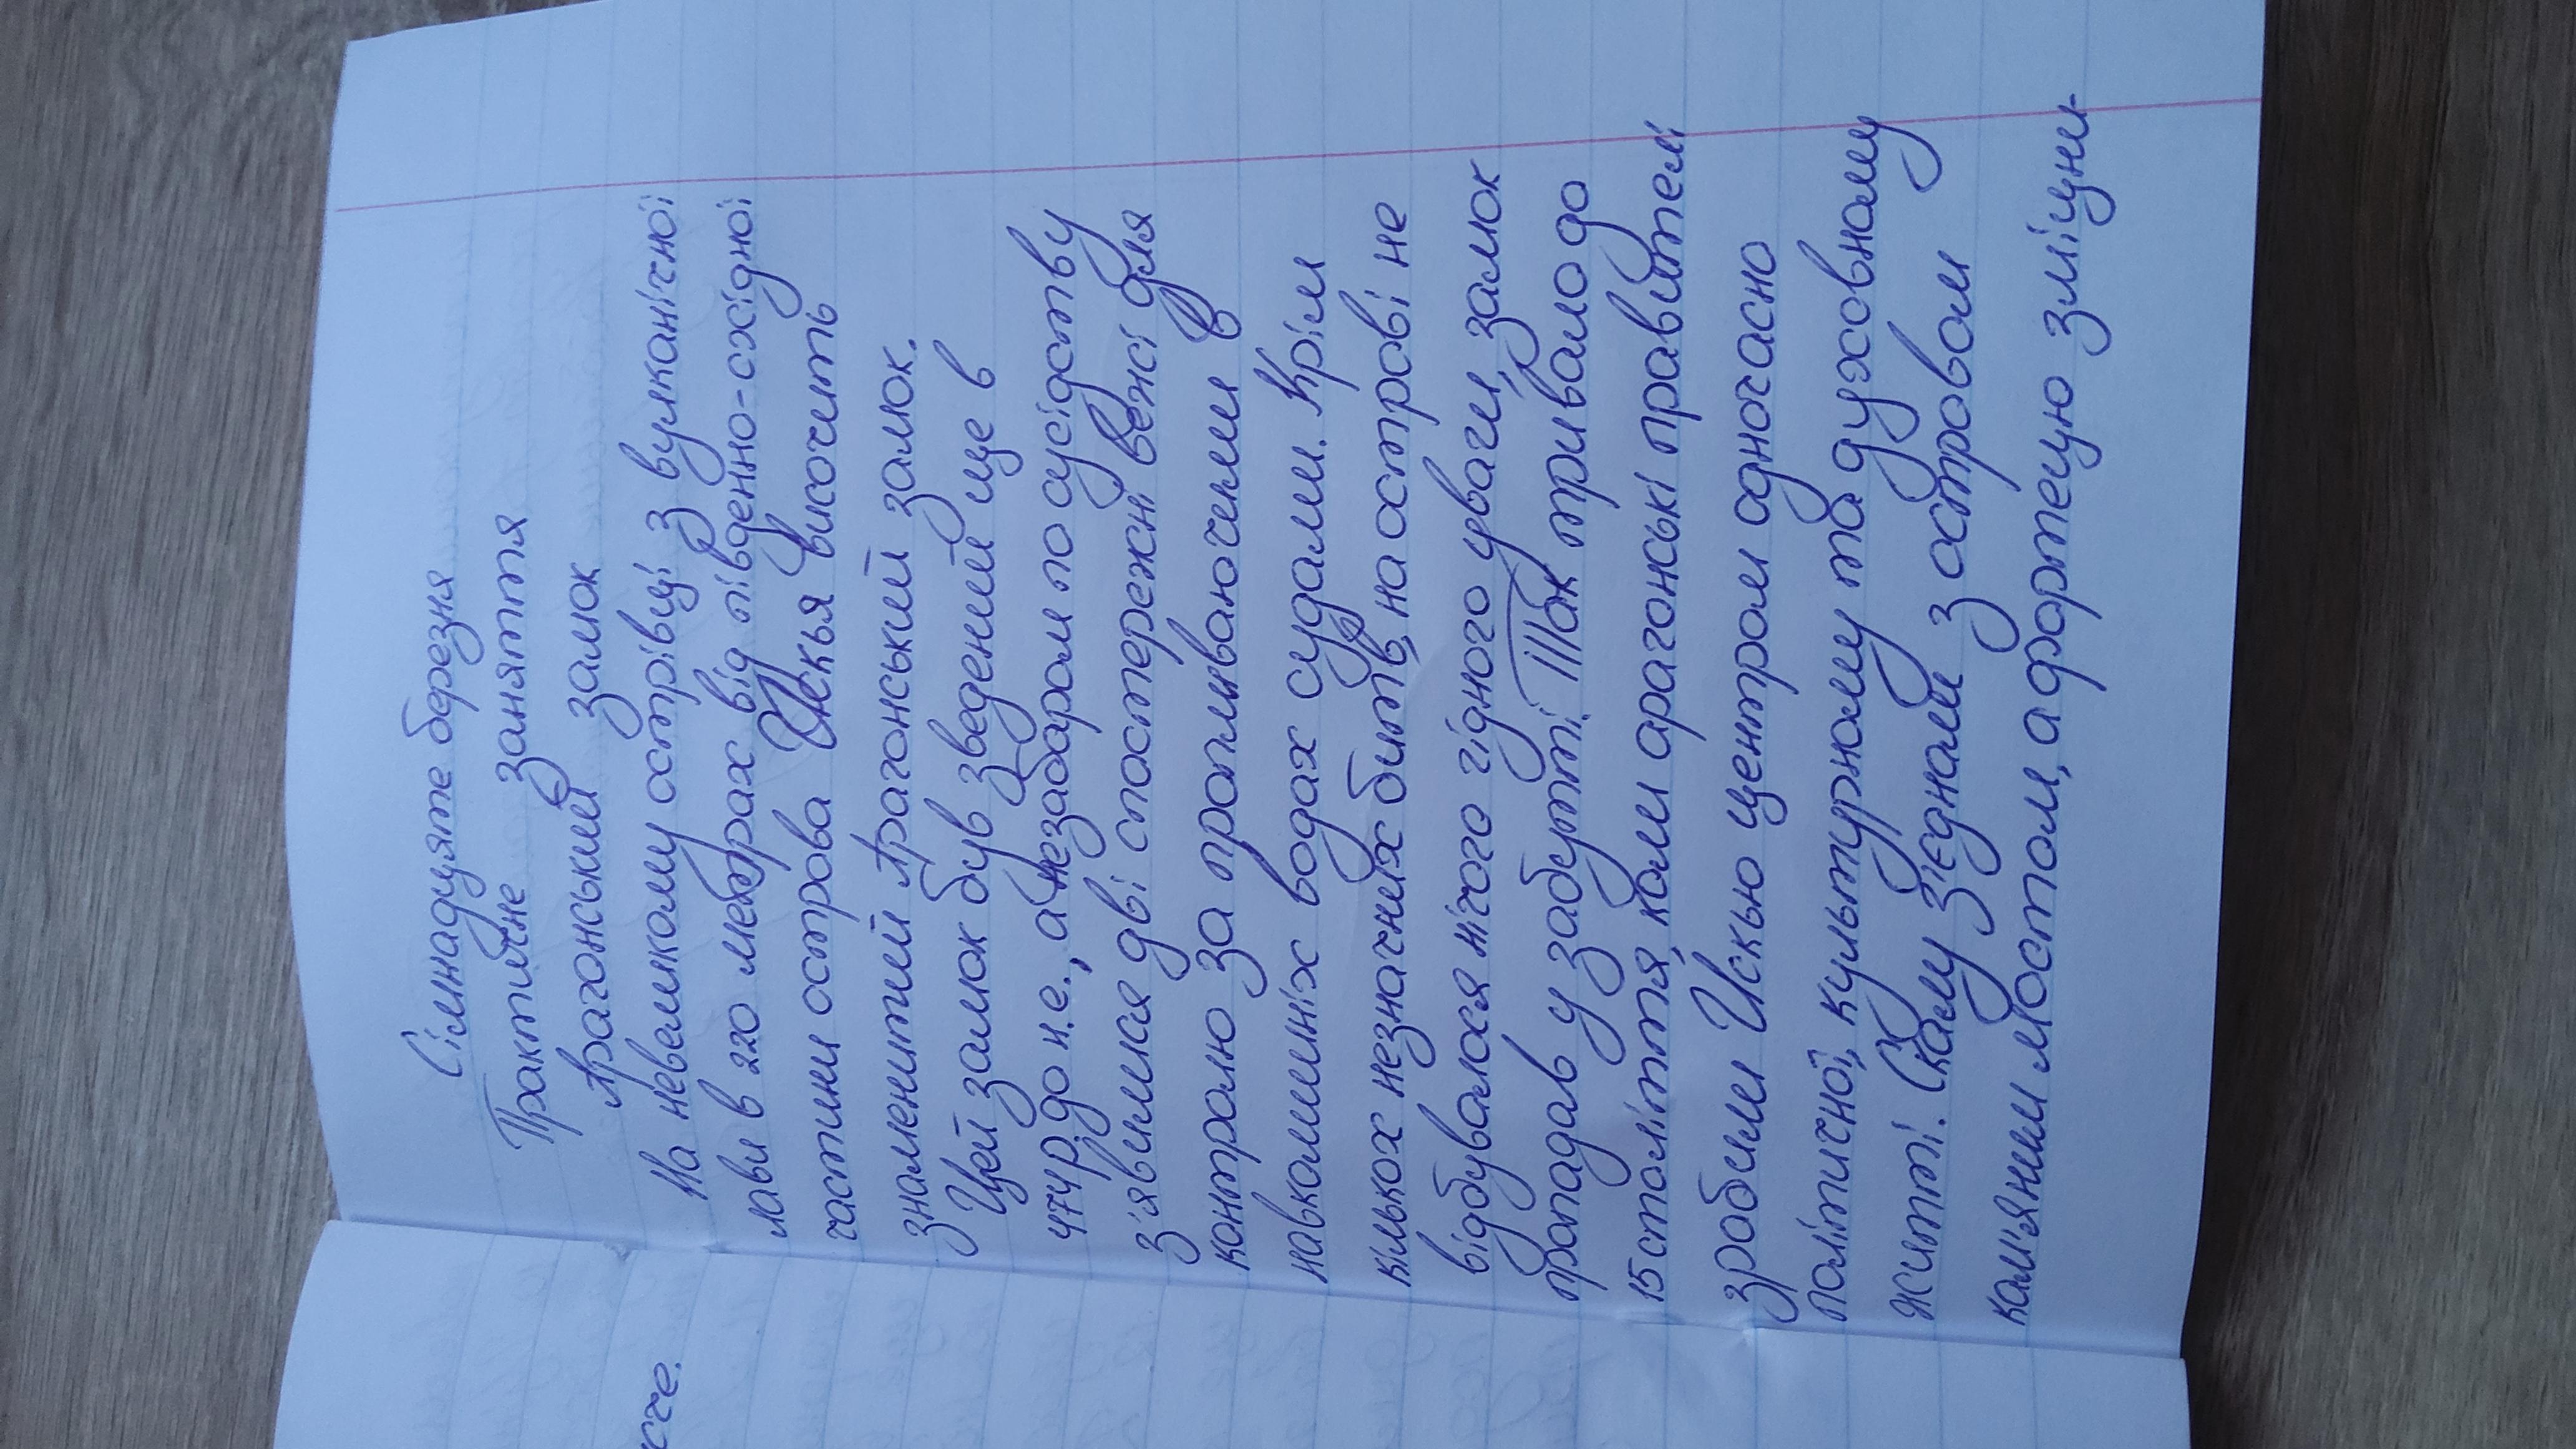 Сімнадцяте березня
Практичне заняття
Арагонський замок
На невеликому острівці з вулканічної
лави в 220 метрах від південно-східної
частини острова Искья височить
знаменитий Арагонський замок.
Цей замок був зведений ще в
474р. до н.е., а незабаром по сусідству
з'явилися дві спостережні вежі для
контролю за пропливаючими в
навколишніх водах судами. Крім
кількох незначних битв, на острові не
відбувалося нічого гідного уваги, замок
пропадав у забутті. Так тривало до
15 століття, коли арагонські правителі
зробили Искью центром одночасно
політичної, культурному та духовному
житті. Скалу з'єднали з островом
кам'яним мостом, а фортецю зміцни-
сче.